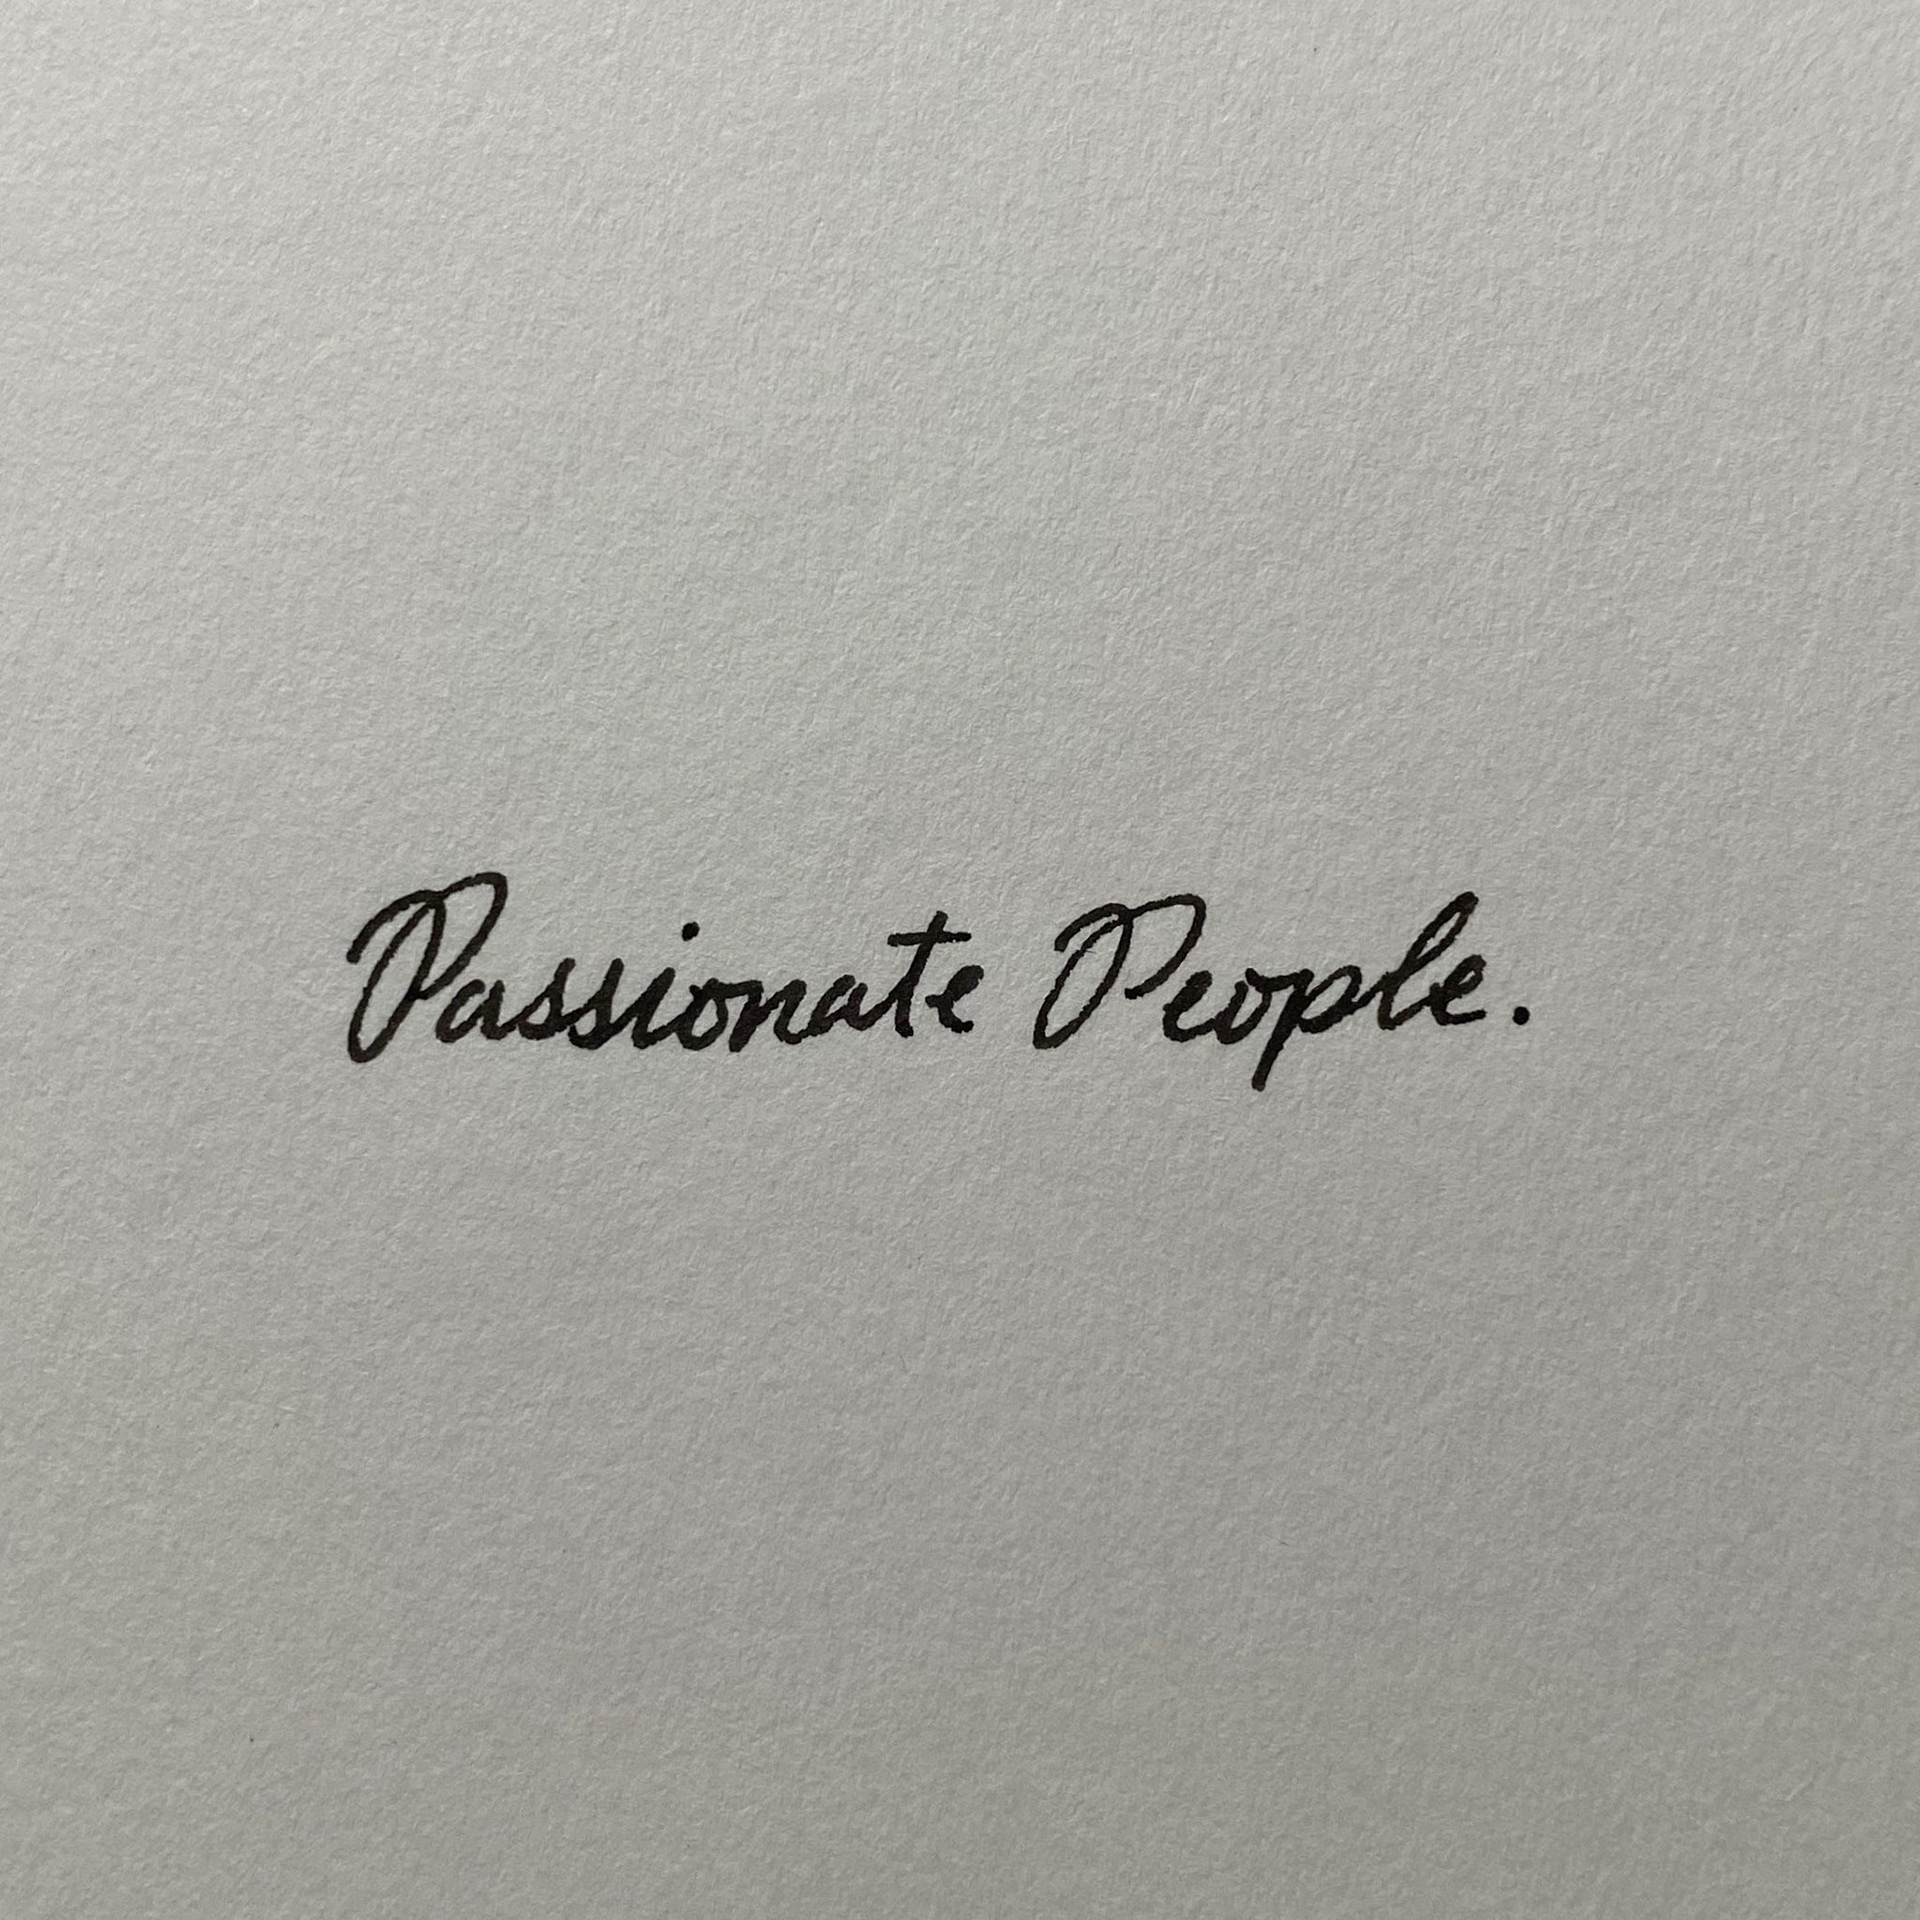 Passionate People.